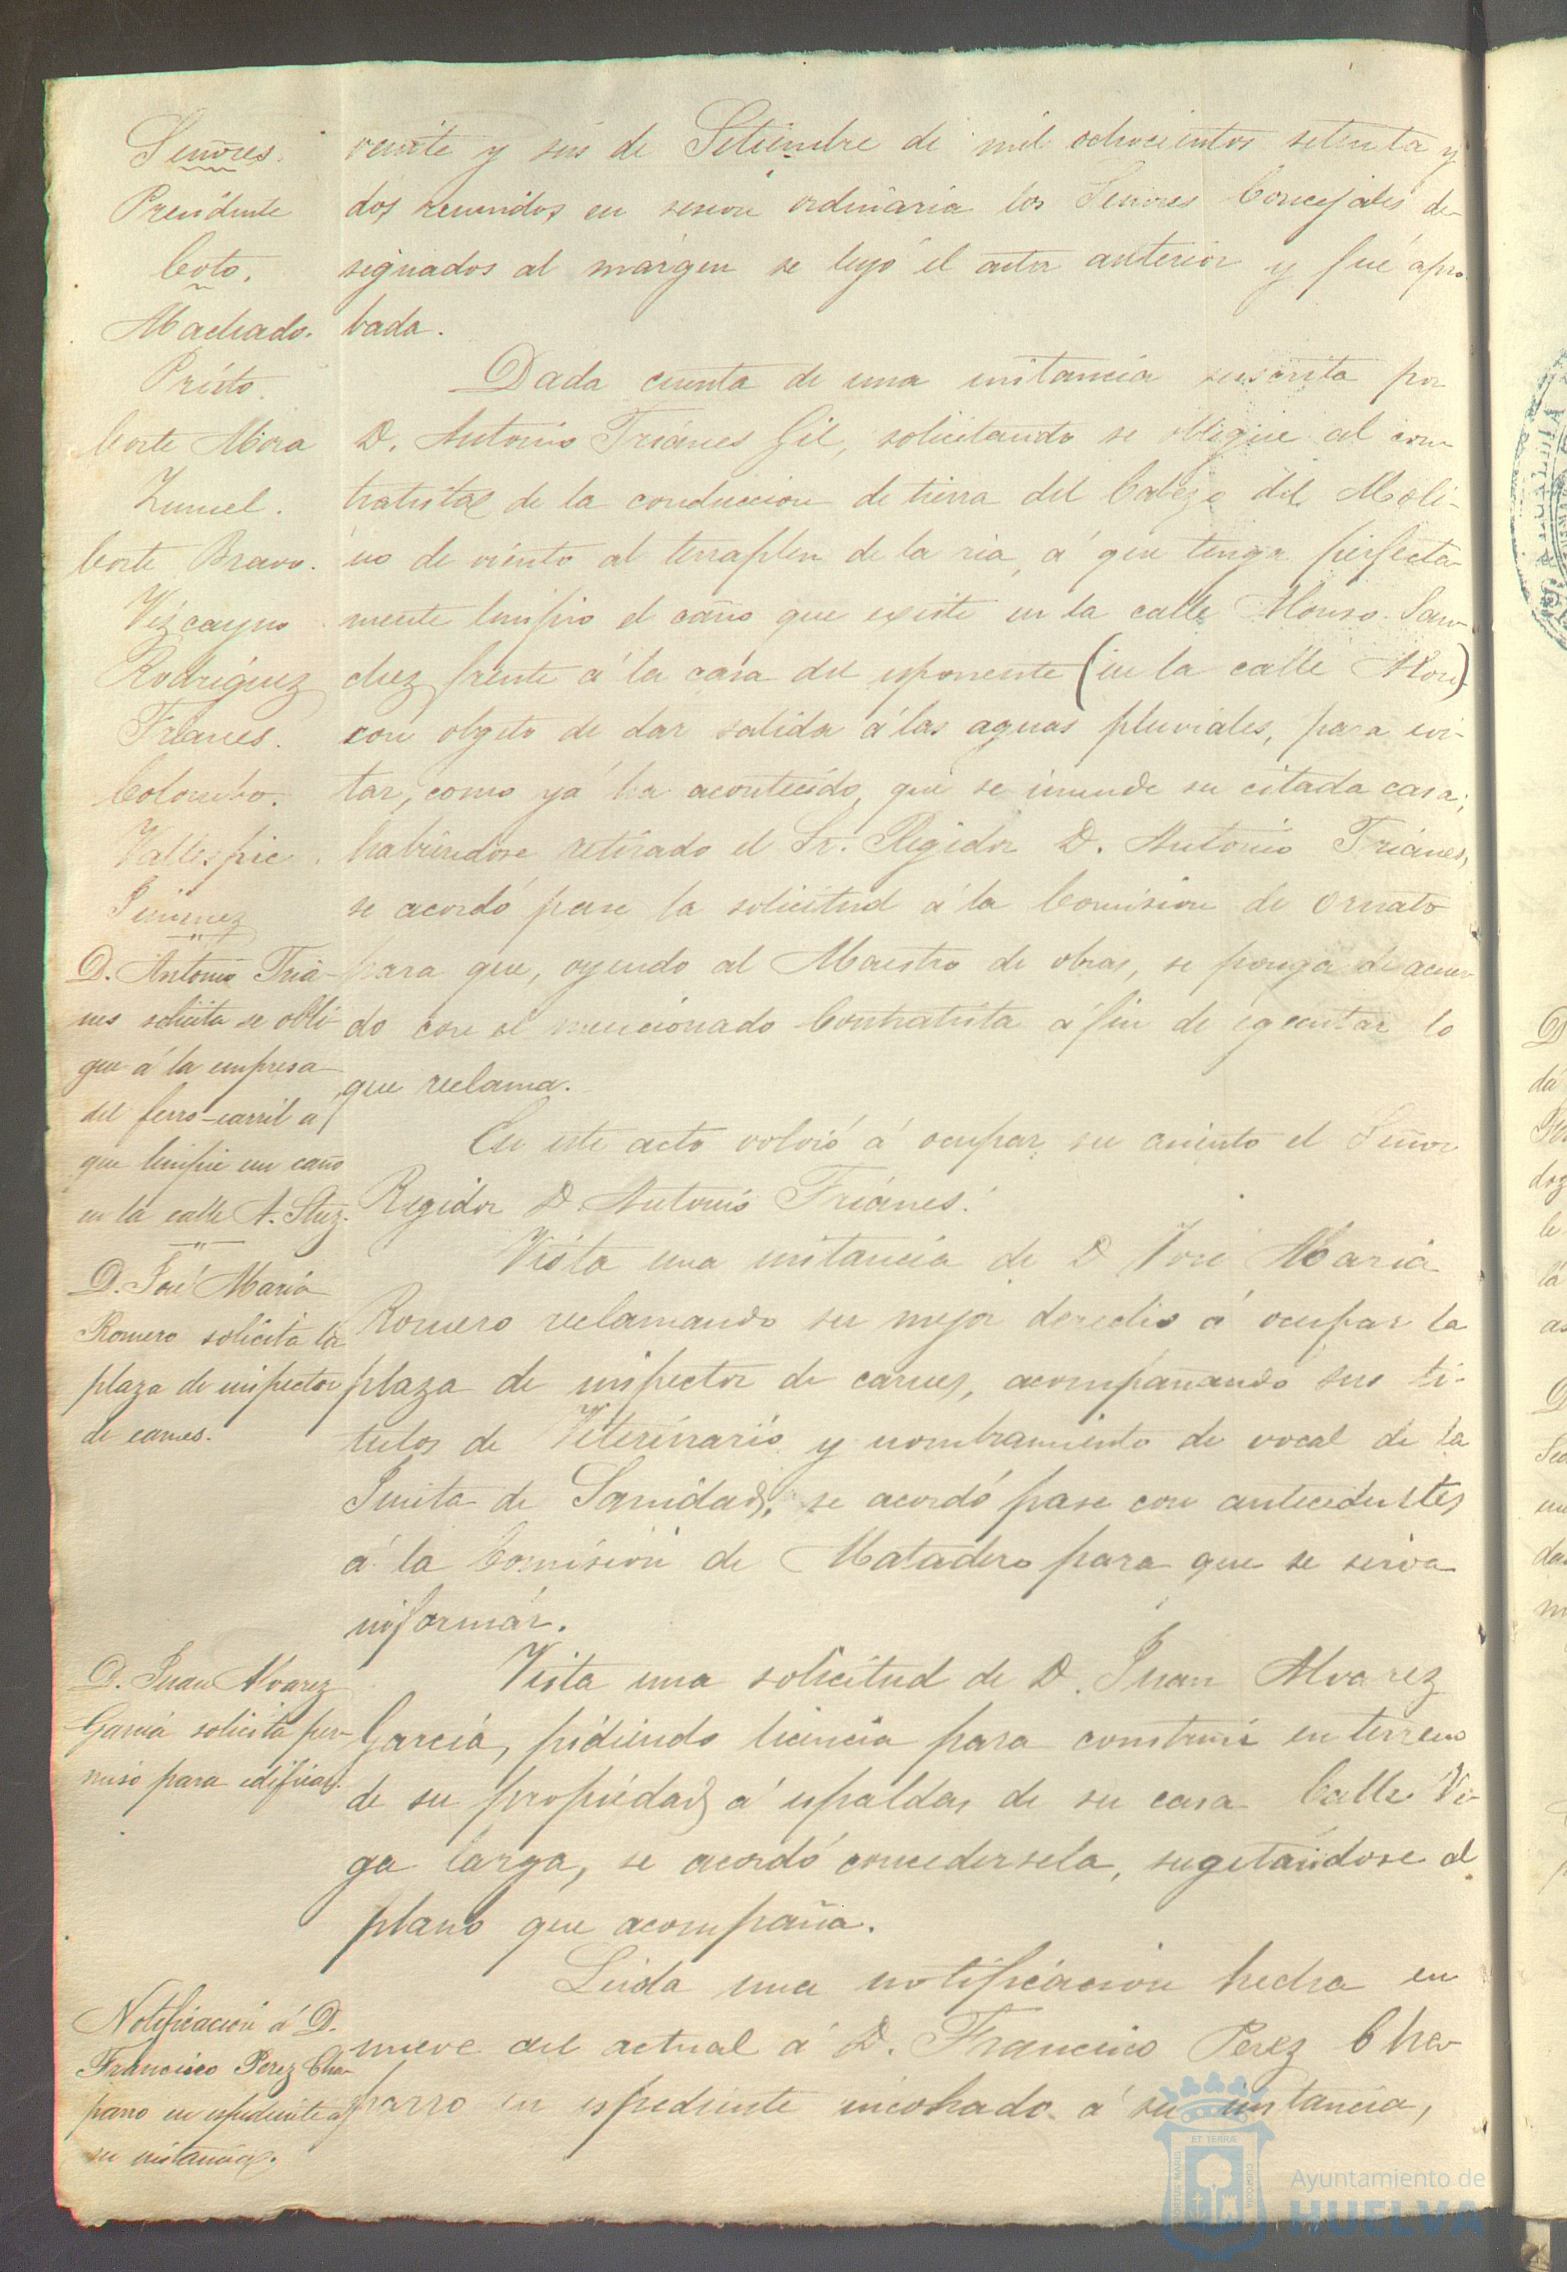 Señores.
Presidente
Coto.
Machado.
Prieto.
Corte Mora
Zumel.
Corte Bravo.
Vizcayno
Rodriguez
Trianes.
Colombo.
Vallespin.
Jimenez
D. Antonio Tria-
nes solicita se obli-
gue á la empresa
del ferro-carril a
que limpie un caño
en la calle A. Shez.
D. José Maria
Romero solicita la
plaza de inspector
de carnes.
D. Juan Alvarez
Garcia solicita per-
miso para edificar.
Notificacion á D.
Francisco Perez Cha-
parro en espediente a
su instancia.
veinte y seis de Setiembre de mil ochocientos setenta y
dos reunidos en sesion ordinaria los Señores Concejales de-
signados al márgen se leyó el acta anterior y fué apro
bada.
Dada cuenta de una instancia suscrita por
D. Antonio Triánes Gil, solicitando se obligue al con
tratista de la conduccion de tierra del Cabezo del Moli-
no de viento al terraplen de la ria, á que tenga perfecta-
mente limpio el caño que existe en la calle Alonso San-
chez frente á la casa del esponente (en la calle Mon)
con objeto de dar salida á las aguas pluviales, para evi-
tar, como yá ha acontecido, que se inunde su citada casa;
habiéndose retirado el Sr. Regidor D. Antonio Triánes,
se acordó pase la solicitud á la Comision de Ornato
para que, oyendo al Maestro de obras, se ponga de acuer
do con el mencionado Contratista á fin de egecutar lo
que reclama.
En este acto volvió á ocupar su asiento el Señor
Regidor D. Antonio Triánes.
Vista una instancia de D José Maria
Romero reclamando su mejor derecho á ocupar la
plaza de inspector de carnes, acompañando sus tí-
tulos de Veterinario y nombramiento de vocal de la
Junta de Sanidad, se acordó pase con antecedentes
á la Comision de Matadero para que se sirva
informár.
Vista una solicitud de D. Juan Alvarez
García, pidiendo licencia para construir en terreno
de su propiedad á espaldas de su casa Calle Ve-
ga larga, se acordó concedersela, sugetándose al
plano que acompaña.
Leida una notificacion hecha en
nueve del actual á D. Francisco Perez Cha-
parro en espediente incohado á su instancia,
Ayuntamiento de
HUELVA